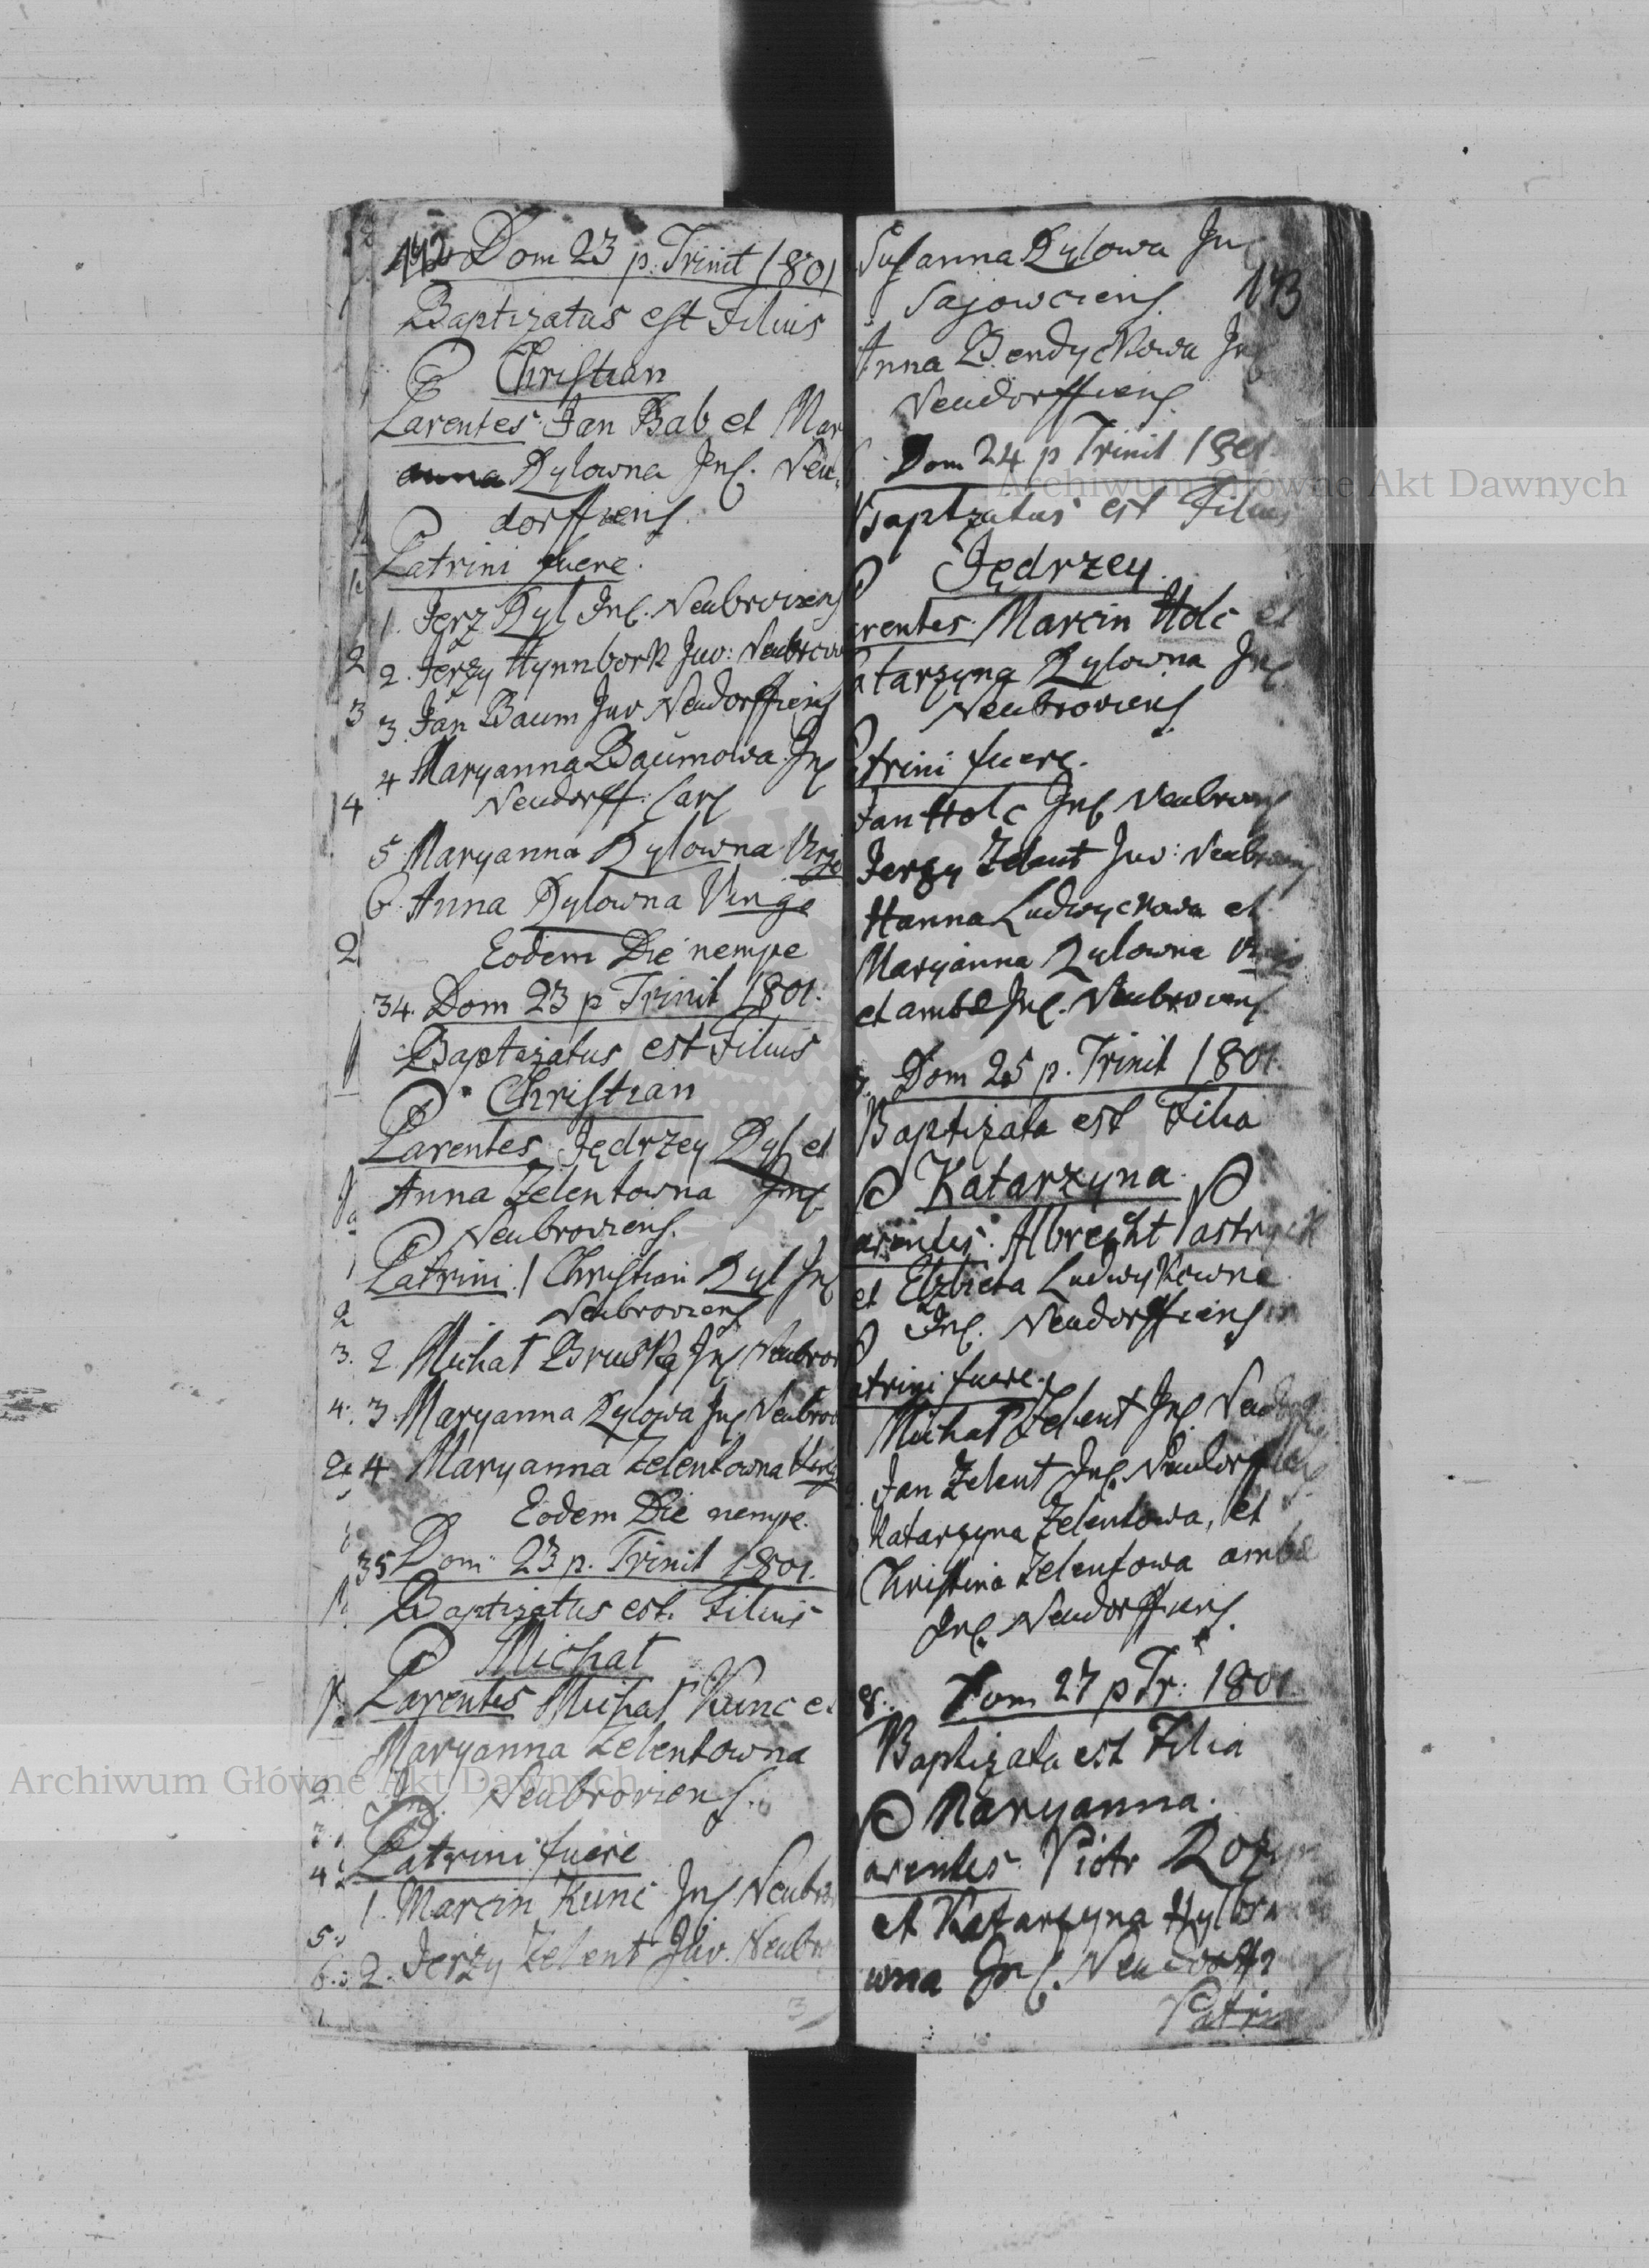 142 Dom 23 p. Trinit 1801
Baptizatus est Filius
Christian
Parentes Jan Bab et Mar
Rylowna Inc. Neu-
dorffiens.
Patrini fuere.
1. Jerz Ryl Inc. Neubroviens
2. Jerzy Hynnbork Juv: Neubrow
3. Jan Baum Juv Neudorffiens
4 Maryanna Baumowa Inc
Neudorff:
5 Maryanna Rylowna Virgo
6. Anna Rylowna Virgo
Eodem Die nempe
34. Dom 23 p Trinit 1801.
Baptizatus est Filius
Christian
Parentes Jędrzey Ryl et
Anna Zelentowna Inc
Neubroviens.
Patrini 1 Christian Ryl Inc
Neubroviens
2 Michał Bruska Inc Neubrov
3 Maryanna Rylowa Inc Neubrov
4 Maryanna Zelentowna Virg
Eodem Die nempe.
35 Dom 23 p. Trinit 1801.
Baptizatus est. Filius
Michał
Parentes Michał Kunc et
Maryanna Zelentowna
Inc. Neubroviens.
Patrini fuere
1. Marcin Kunc Inc Neubro
2. Jerzy Zelent Juv. Neubr
Susanna Rylowa Inc
143
Sajowciens.
Anna Bendyckowa Inc
Neudorffiens.
Dom 24 p Trinit 1801
Baptizatus est Filius
Jędrzey
arentes. Marcin Holc et
Katarzyna Rylowna Inc
Neubroviens
Patrini fuere.
Jan Holc Inc Neubrovs
Jerzy Zelent Juv: Neubroviens
Hanna Ludwyckowa et
Maryanna Rylowna Virgo
et ambæ Inc. Neubroviens
Dom 25 p. Trinit 1801.
Baptizata est Filia
Katarzyna
arentes. Albrecht
et Elzbieta Ludwykowna
Inc. Neudorffiens
Patrini fuere.
Michał Zelent Inc Neudorff
Jan Zelent Inc. Neudorffiens
Katarzyna Zelentowa, et
Christina Zelentowa ambæ
Inc. Neudorffiens.
8. Dom 27 p Tr: 1801.
Baptizata est Filia
Maryanna.
arentes Piotr
et Katarzyna Hylbr
wna Inc. Neudorff
Patri
Archiwum Główne Akt Dawnych
Archiwum Główne Akt Dawnych